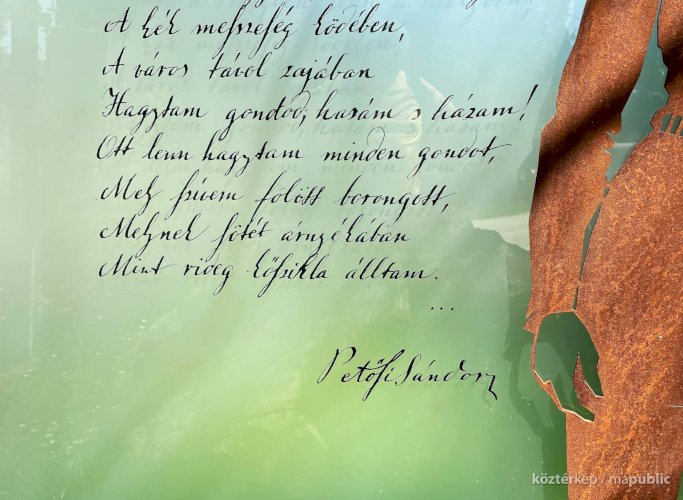 A kék messzeség ködében,
A város távol zajában
Hagytam gondod, hazám s házam!
Ott lenn hagytam minden gondot,
Mely szívem fölött borongott,
Melynek sötét árnyékában
Mint rideg kőszikla álltam.
...
Petőfi Sándor
köztérkép / mapublic